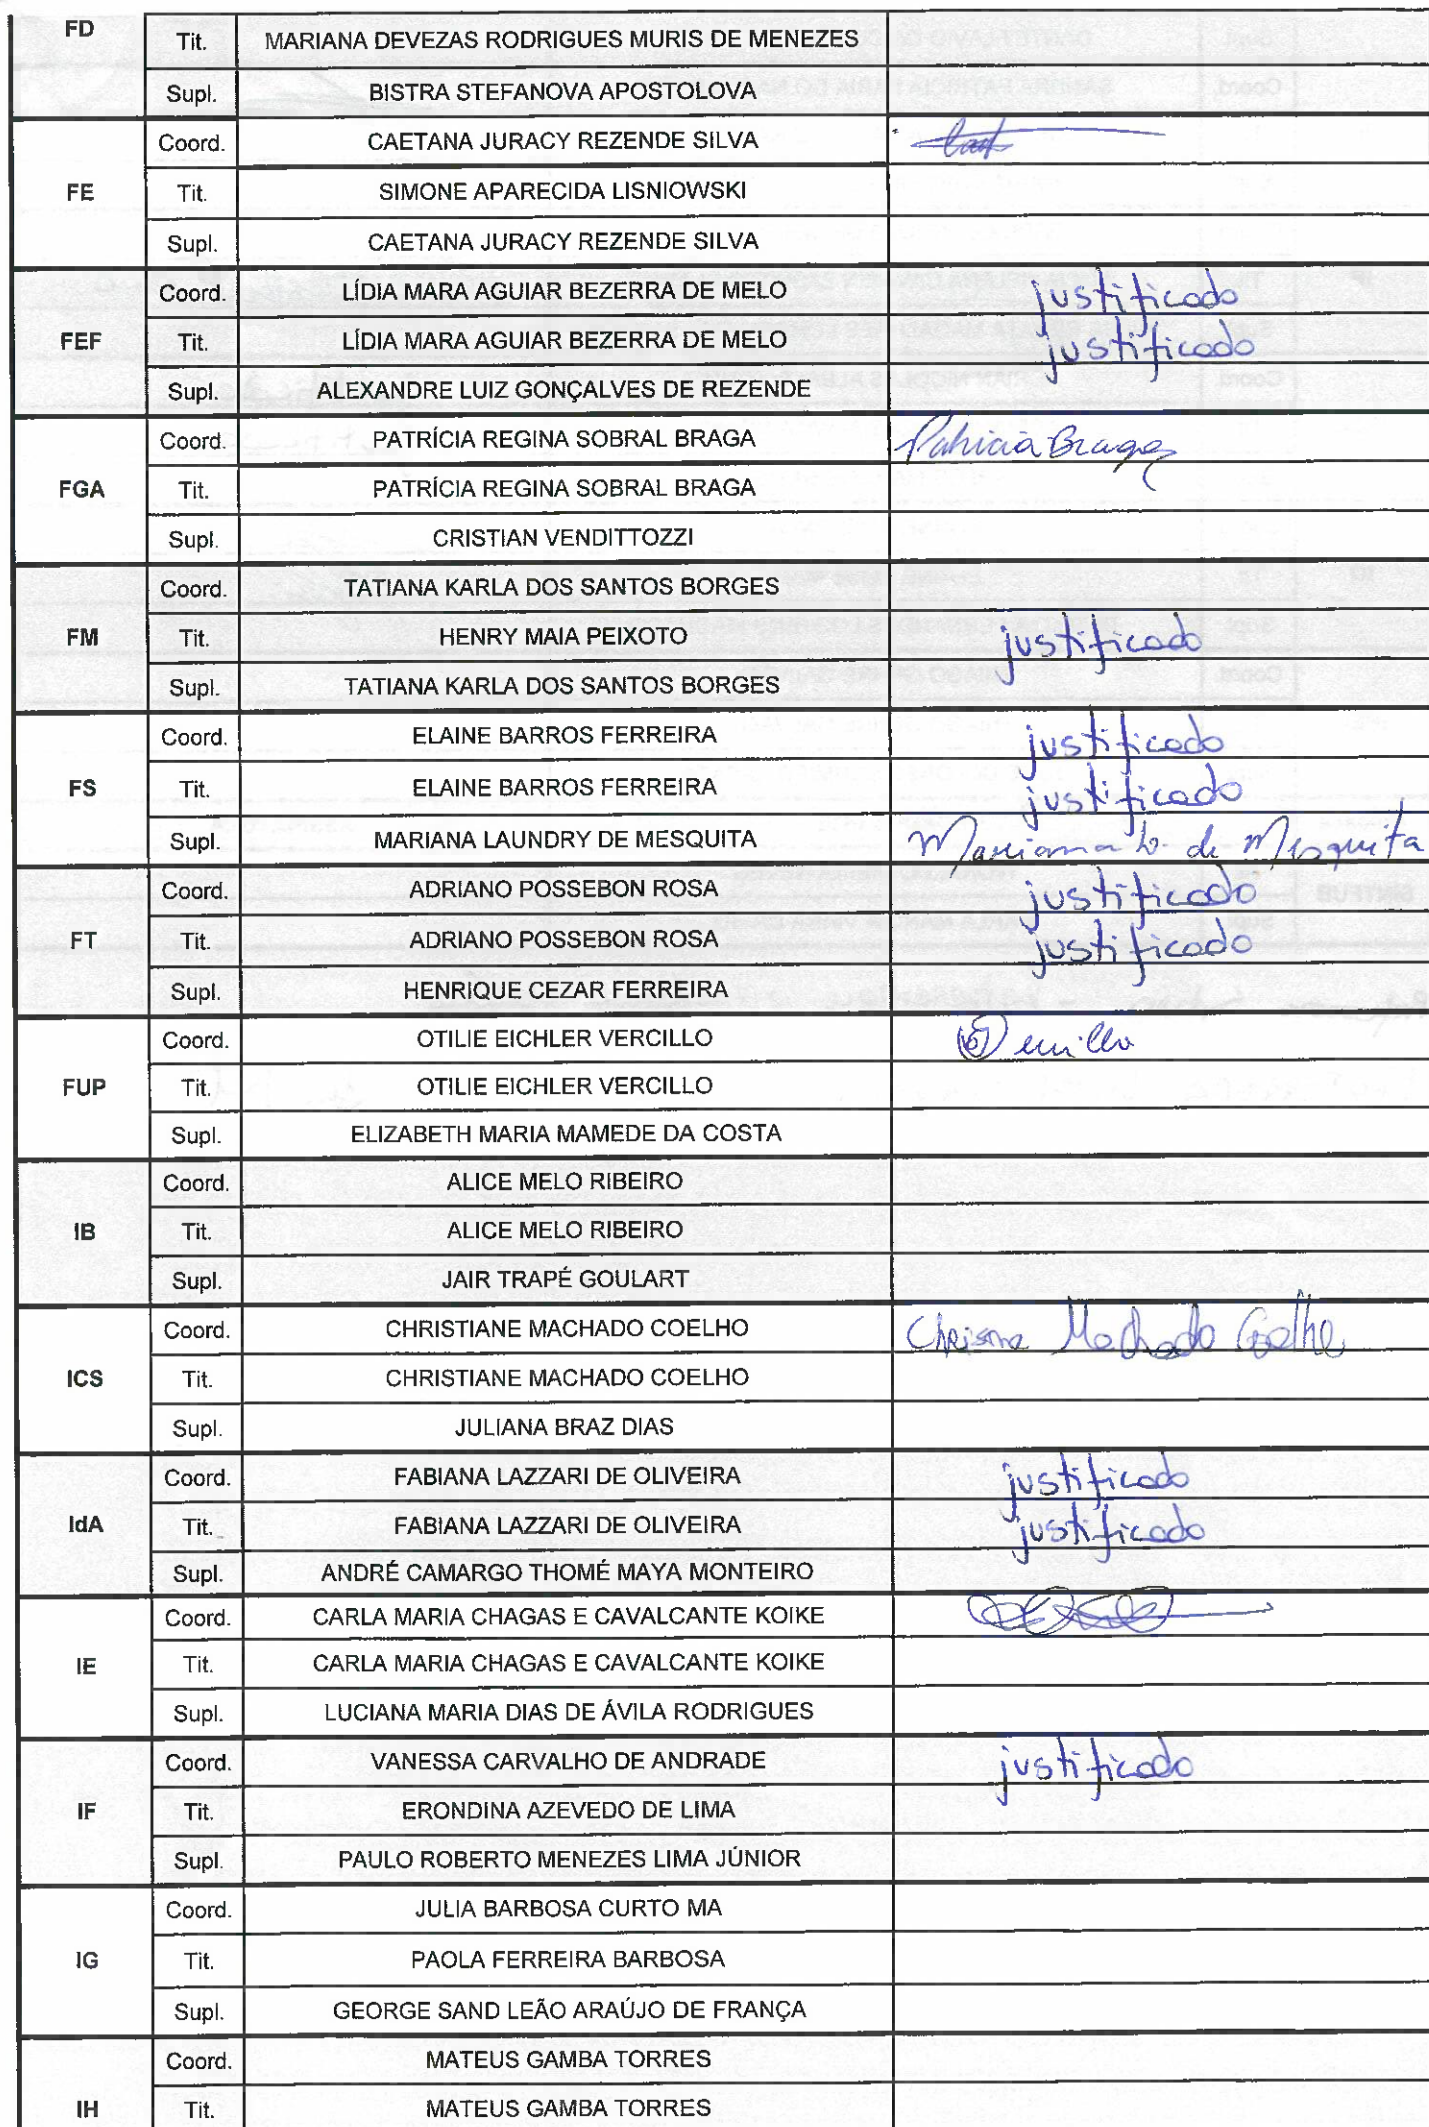 FD Tit. MARIANA DEVEZAS RODRIGUES MURIS DE MENEZES
Supl. BISTRA STEFANOVA APOSTOLOVA
Coord. CAETANA JURACY REZENDE SILVA
FE Tit. SIMONE APARECIDA LISNIOWSKI
Supl. CAETANA JURACY REZENDE SILVA
Coord. LÍDIA MARA AGUIAR BEZERRA DE MELO justificado
FEF Tit. LÍDIA MARA AGUIAR BEZERRA DE MELO justificado
Supl. ALEXANDRE LUIZ GONÇALVES DE REZENDE
Coord. PATRÍCIA REGINA SOBRAL BRAGA Patricia Braga
FGA Tit. PATRÍCIA REGINA SOBRAL BRAGA
Supl. CRISTIAN VENDITTOZZI
Coord. TATIANA KARLA DOS SANTOS BORGES
FM Tit. HENRY MAIA PEIXOTO justificado
Supl. TATIANA KARLA DOS SANTOS BORGES
Coord. ELAINE BARROS FERREIRA justificado
FS Tit. ELAINE BARROS FERREIRA justificado
Supl. MARIANA LAUNDRY DE MESQUITA Mariana L. de Mesquita
Coord. ADRIANO POSSEBON ROSA justificado
FT Tit. ADRIANO POSSEBON ROSA justificado
Supl. HENRIQUE CEZAR FERREIRA
Coord. OTILIE EICHLER VERCILLO
FUP Tit. OTILIE EICHLER VERCILLO
Supl. ELIZABETH MARIA MAMEDE DA COSTA
Coord. ALICE MELO RIBEIRO
IB Tit. ALICE MELO RIBEIRO
Supl. JAIR TRAPÉ GOULART
Coord. CHRISTIANE MACHADO COELHO Machado Coelho
ICS Tit. CHRISTIANE MACHADO COELHO
Supl. JULIANA BRAZ DIAS
Coord. FABIANA LAZZARI DE OLIVEIRA justificado
IdA Tit. FABIANA LAZZARI DE OLIVEIRA justificado
Supl. ANDRÉ CAMARGO THOMÉ MAYA MONTEIRO
Coord. CARLA MARIA CHAGAS E CAVALCANTE KOIKE
IE Tit. CARLA MARIA CHAGAS E CAVALCANTE KOIKE
Supl. LUCIANA MARIA DIAS DE ÁVILA RODRIGUES
Coord. VANESSA CARVALHO DE ANDRADE justificado
IF Tit. ERONDINA AZEVEDO DE LIMA
Supl. PAULO ROBERTO MENEZES LIMA JÚNIOR
Coord. JULIA BARBOSA CURTO MA
IG Tit. PAOLA FERREIRA BARBOSA
Supl. GEORGE SAND LEÃO ARAÚJO DE FRANÇA
Coord. MATEUS GAMBA TORRES
IH Tit. MATEUS GAMBA TORRES